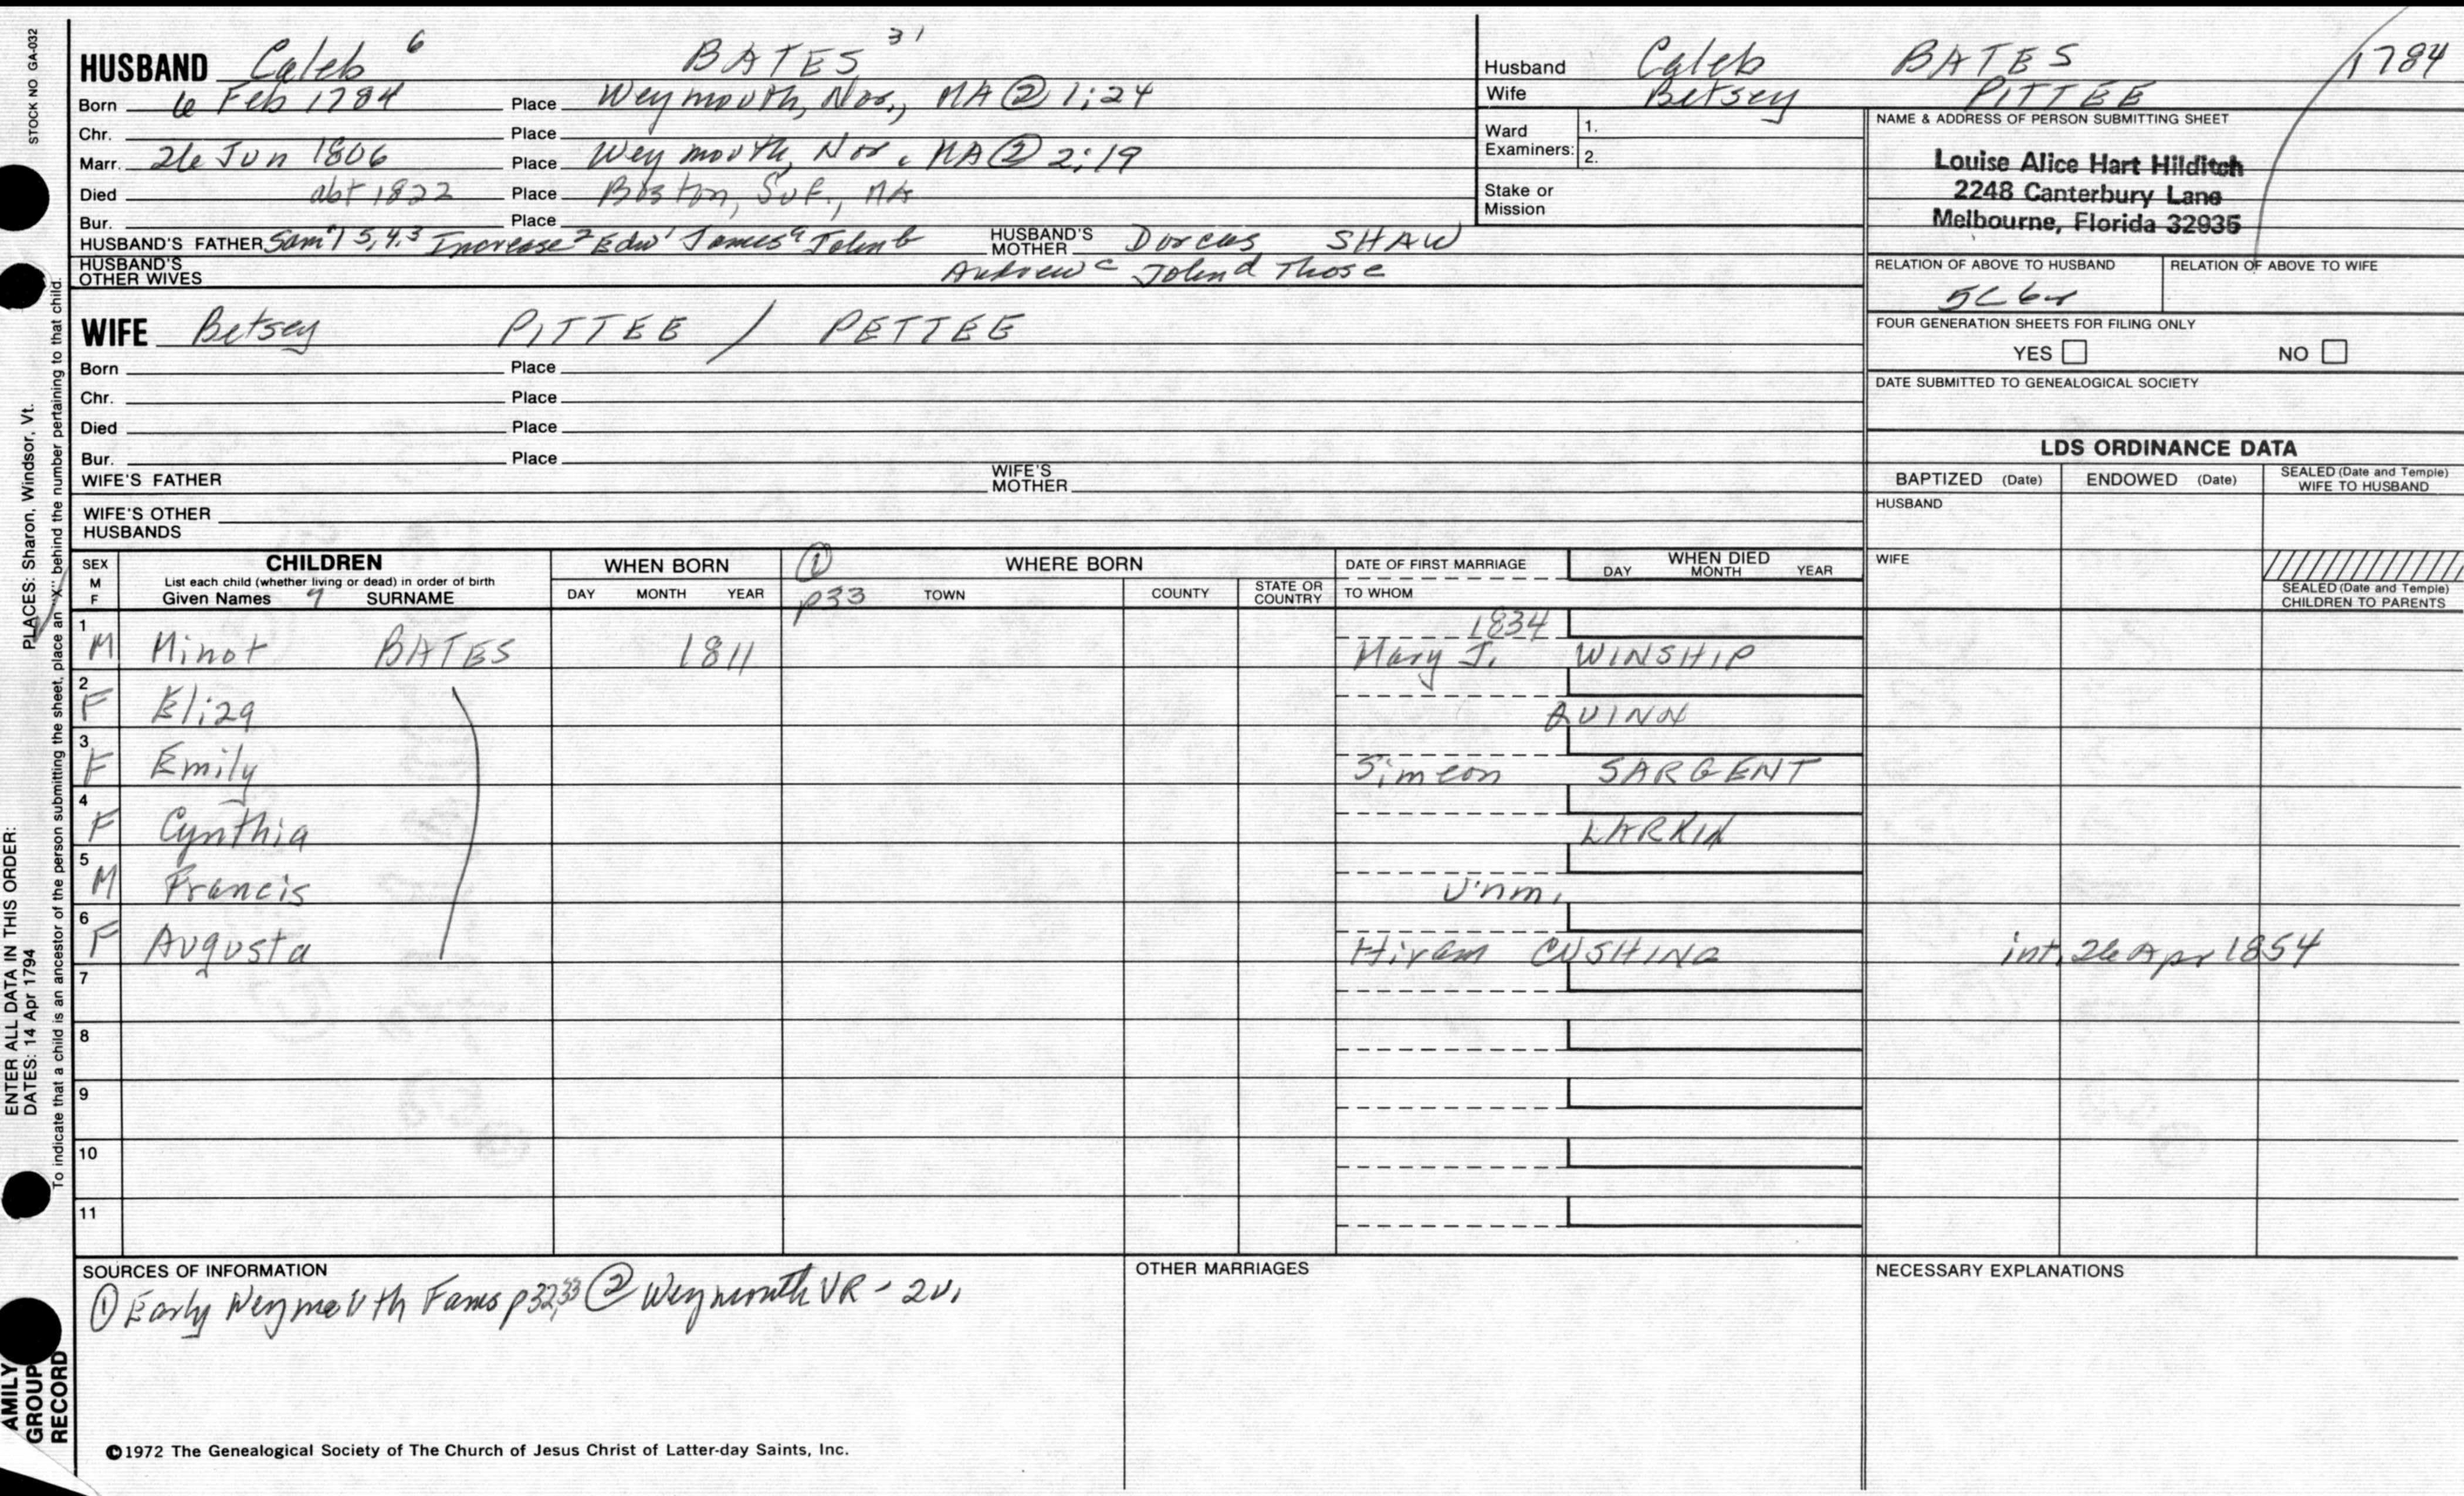 STOCK NO GA-032
HUSBAND Caleb 6 BATES 31
Born 6 Feb 1784 Place Weymouth, Nor., MA @ 1:24
Chr. Place
Marr. 26 Jun 1806 Place Weymouth, Nor., MA @ 2:19
Died abt 1822 Place Boston, Suf., MA
Bur. Place
HUSBAND'S FATHER Sam'l 5,4,3 Increase 2 Edw 1 James a John b HUSBAND'S MOTHER Dorcas SHAW
HUSBAND'S OTHER WIVES Andrew c John d Thos e
WIFE Betsey PITTEE / PETTEE
Born Place
Chr. Place
Died Place
Bur. Place
WIFE'S FATHER WIFE'S MOTHER
WIFE'S OTHER HUSBANDS
Husband Caleb BATES 1784
Wife Betsey PITTEE
Ward Examiners: 1.
2.
Stake or Mission
NAME & ADDRESS OF PERSON SUBMITTING SHEET
Louise Alice Hart Hilditch
2248 Canterbury Lane
Melbourne, Florida 32935
RELATION OF ABOVE TO HUSBAND RELATION OF ABOVE TO WIFE
5C6r
FOUR GENERATION SHEETS FOR FILING ONLY
YES NO
DATE SUBMITTED TO GENEALOGICAL SOCIETY
LDS ORDINANCE DATA
BAPTIZED (Date) ENDOWED (Date) SEALED (Date and Temple) WIFE TO HUSBAND
HUSBAND
WIFE
SEALED (Date and Temple) CHILDREN TO PARENTS
SEX M F
CHILDREN
List each child (whether living or dead) in order of birth
Given Names 7 SURNAME
WHEN BORN
DAY MONTH YEAR
① p33
WHERE BORN
TOWN COUNTY STATE OR COUNTRY
DATE OF FIRST MARRIAGE
TO WHOM
WHEN DIED
DAY MONTH YEAR
1 M Minot BATES 1811 1834 Mary J. WINSHIP
2 F Eliza QUINN
3 F Emily Simeon SARGENT
4 F Cynthia LARKIN
5 M Francis Unm.
6 F Augusta Hiram CUSHING int. 26 Apr 1854
7
8
9
10
11
SOURCES OF INFORMATION
① Early Weymouth Fams p32,33 ② Weymouth VR - 2v.
OTHER MARRIAGES
NECESSARY EXPLANATIONS
©1972 The Genealogical Society of The Church of Jesus Christ of Latter-day Saints, Inc.
ENTER ALL DATA IN THIS ORDER:
DATES: 14 Apr 1794 PLACES: Sharon, Windsor, Vt.
To indicate that a child is an ancestor of the person submitting the sheet, place an "X" behind the number pertaining to that child.
AMILY
GROUP
RECORD